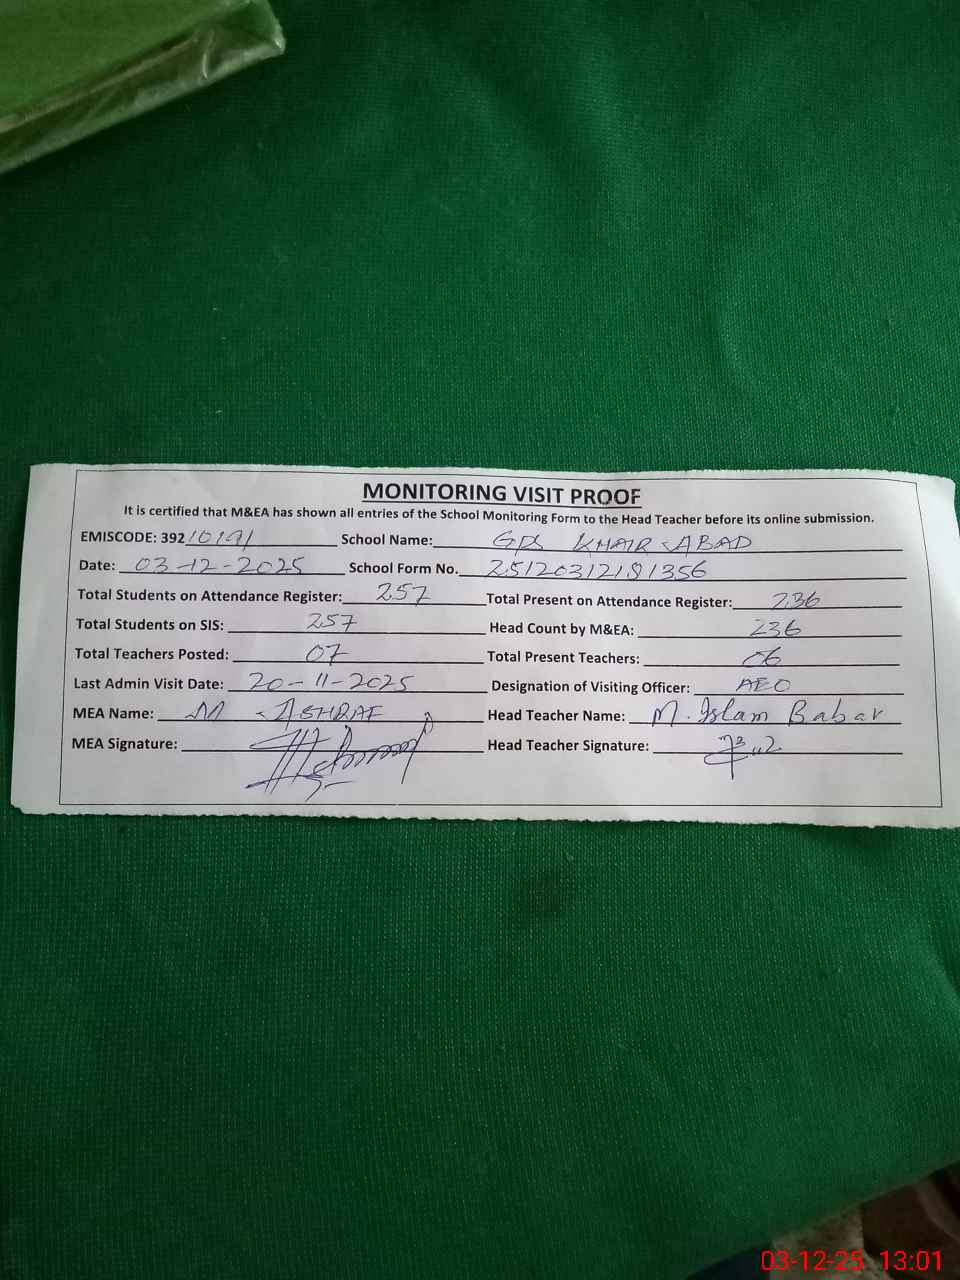 MONITORING VISIT PROOF
It is certified that M&EA has shown all entries of the School Monitoring Form to the Head Teacher before its online submission.
EMISCODE: 39210191 School Name: GPS KHAIR ABAD
Date: 03-12-2025 School Form No. 25120312181356
Total Students on Attendance Register: 257 Total Present on Attendance Register: 236
Total Students on SIS: 257 Head Count by M&EA: 236
Total Teachers Posted: 07 Total Present Teachers: 06
Last Admin Visit Date: 20-11-2025 Designation of Visiting Officer: AEO
MEA Name: M. ASHRAF Head Teacher Name: M. Islam Babar
MEA Signature: Head Teacher Signature:
03-12-25 13:01